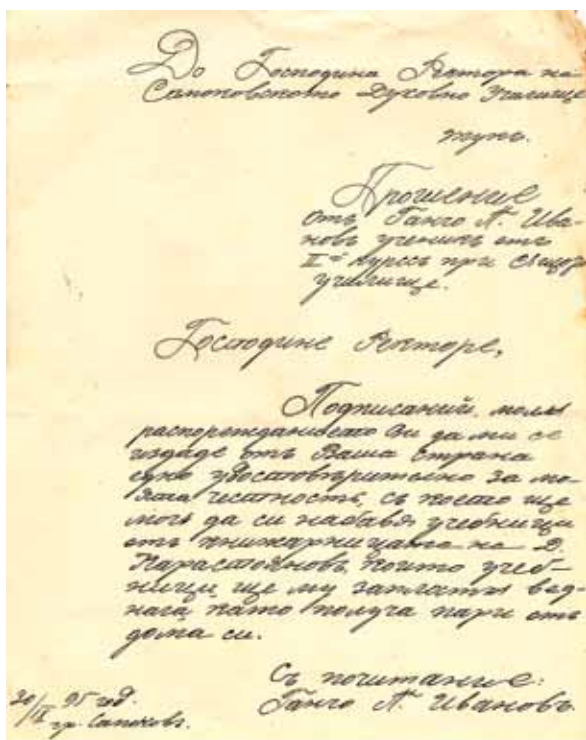 До Господина Ректора на
Самоковското Духовно Училище
тукъ.
Прошение
отъ Ганчо П. Ива-
новъ ученикъ отъ
II й курссъ при същото
училище.
Господине Ректоре,
Подписаний, моля
распорежданието Ви да ми се
издаде отъ Ваша страна
едно удостовѣрително за мо-
ята честность, съ което ще
могѫ да си набавя учебници
отъ книжарницата на Д.
Карастояновъ, които учеб-
ници, ще му заплатя вед-
нага като получа пари отъ
дома си.
Съ почитание:
Ганчо П. Ивановъ.
30/IX 95 год.
гр. Самоковъ.